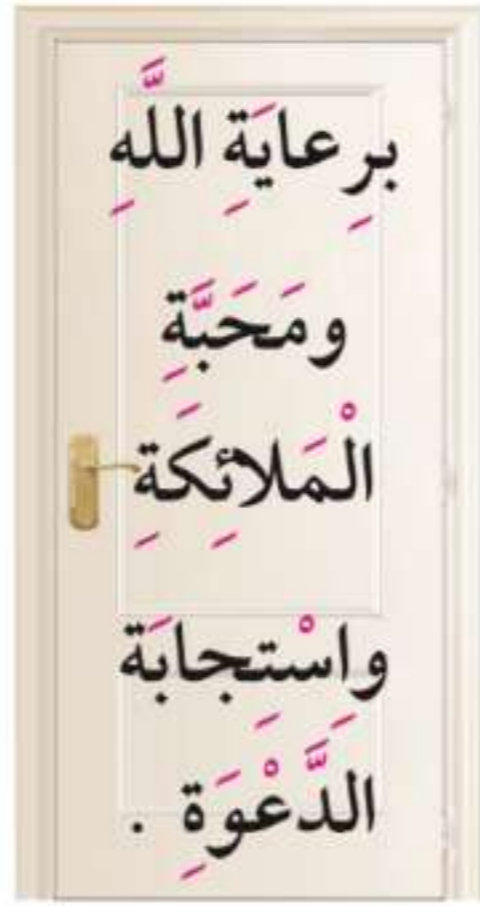 بِرِعايَةِ اللَّهِ
ومَحَبَّةِ
الْمَلائِكَةِ
واسْتِجابَة
الدَّعْوَةِ .